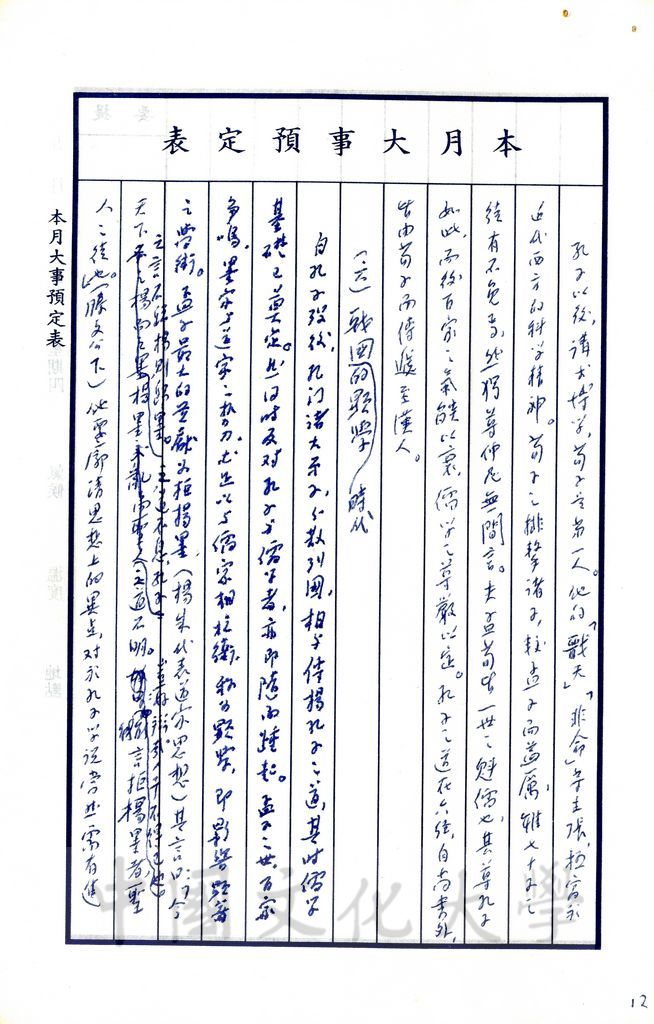 本月大事預定表
孔子以後，諸大博學，荀子應為第一人。他的「戡天」「非命」等主張，極富於
近代西方的科學精神。荀子之排擊諸子，較孟子而益厲，雖七十子之
徒有不免焉，然獨尊仲尼無間言。夫孟荀皆一世之魁儒也，其尊孔子
如此，而後百家之氣餒以衰，儒學之尊嚴以定。孔子之道在六經，自尚書外，
皆由荀子而傳遞至漢人。
（六）戰國的顯學時代
自孔子歿後，孔門諸大弟子，分散列國，相與傳揚孔子之道，其時儒學
基礎已奠定。然同時反對孔子與儒學者，亦即隨而踵起。孟子之世，百家
爭鳴，墨家與道家之勢力，尤足以與儒家相抗衡，稱為顯學，即影響
之學術。孟子最大的貢獻為拒楊墨（楊朱代表道家思想）其言曰：「今
天下之言不歸楊則歸墨。楊墨之道不息，孔子之道不明。能言拒楊墨者，聖
人之徒也。」（滕文公下）他要廓清思想上的異点，對於孔子學說當然需有進
本月大事預定表
中國文化大學
12